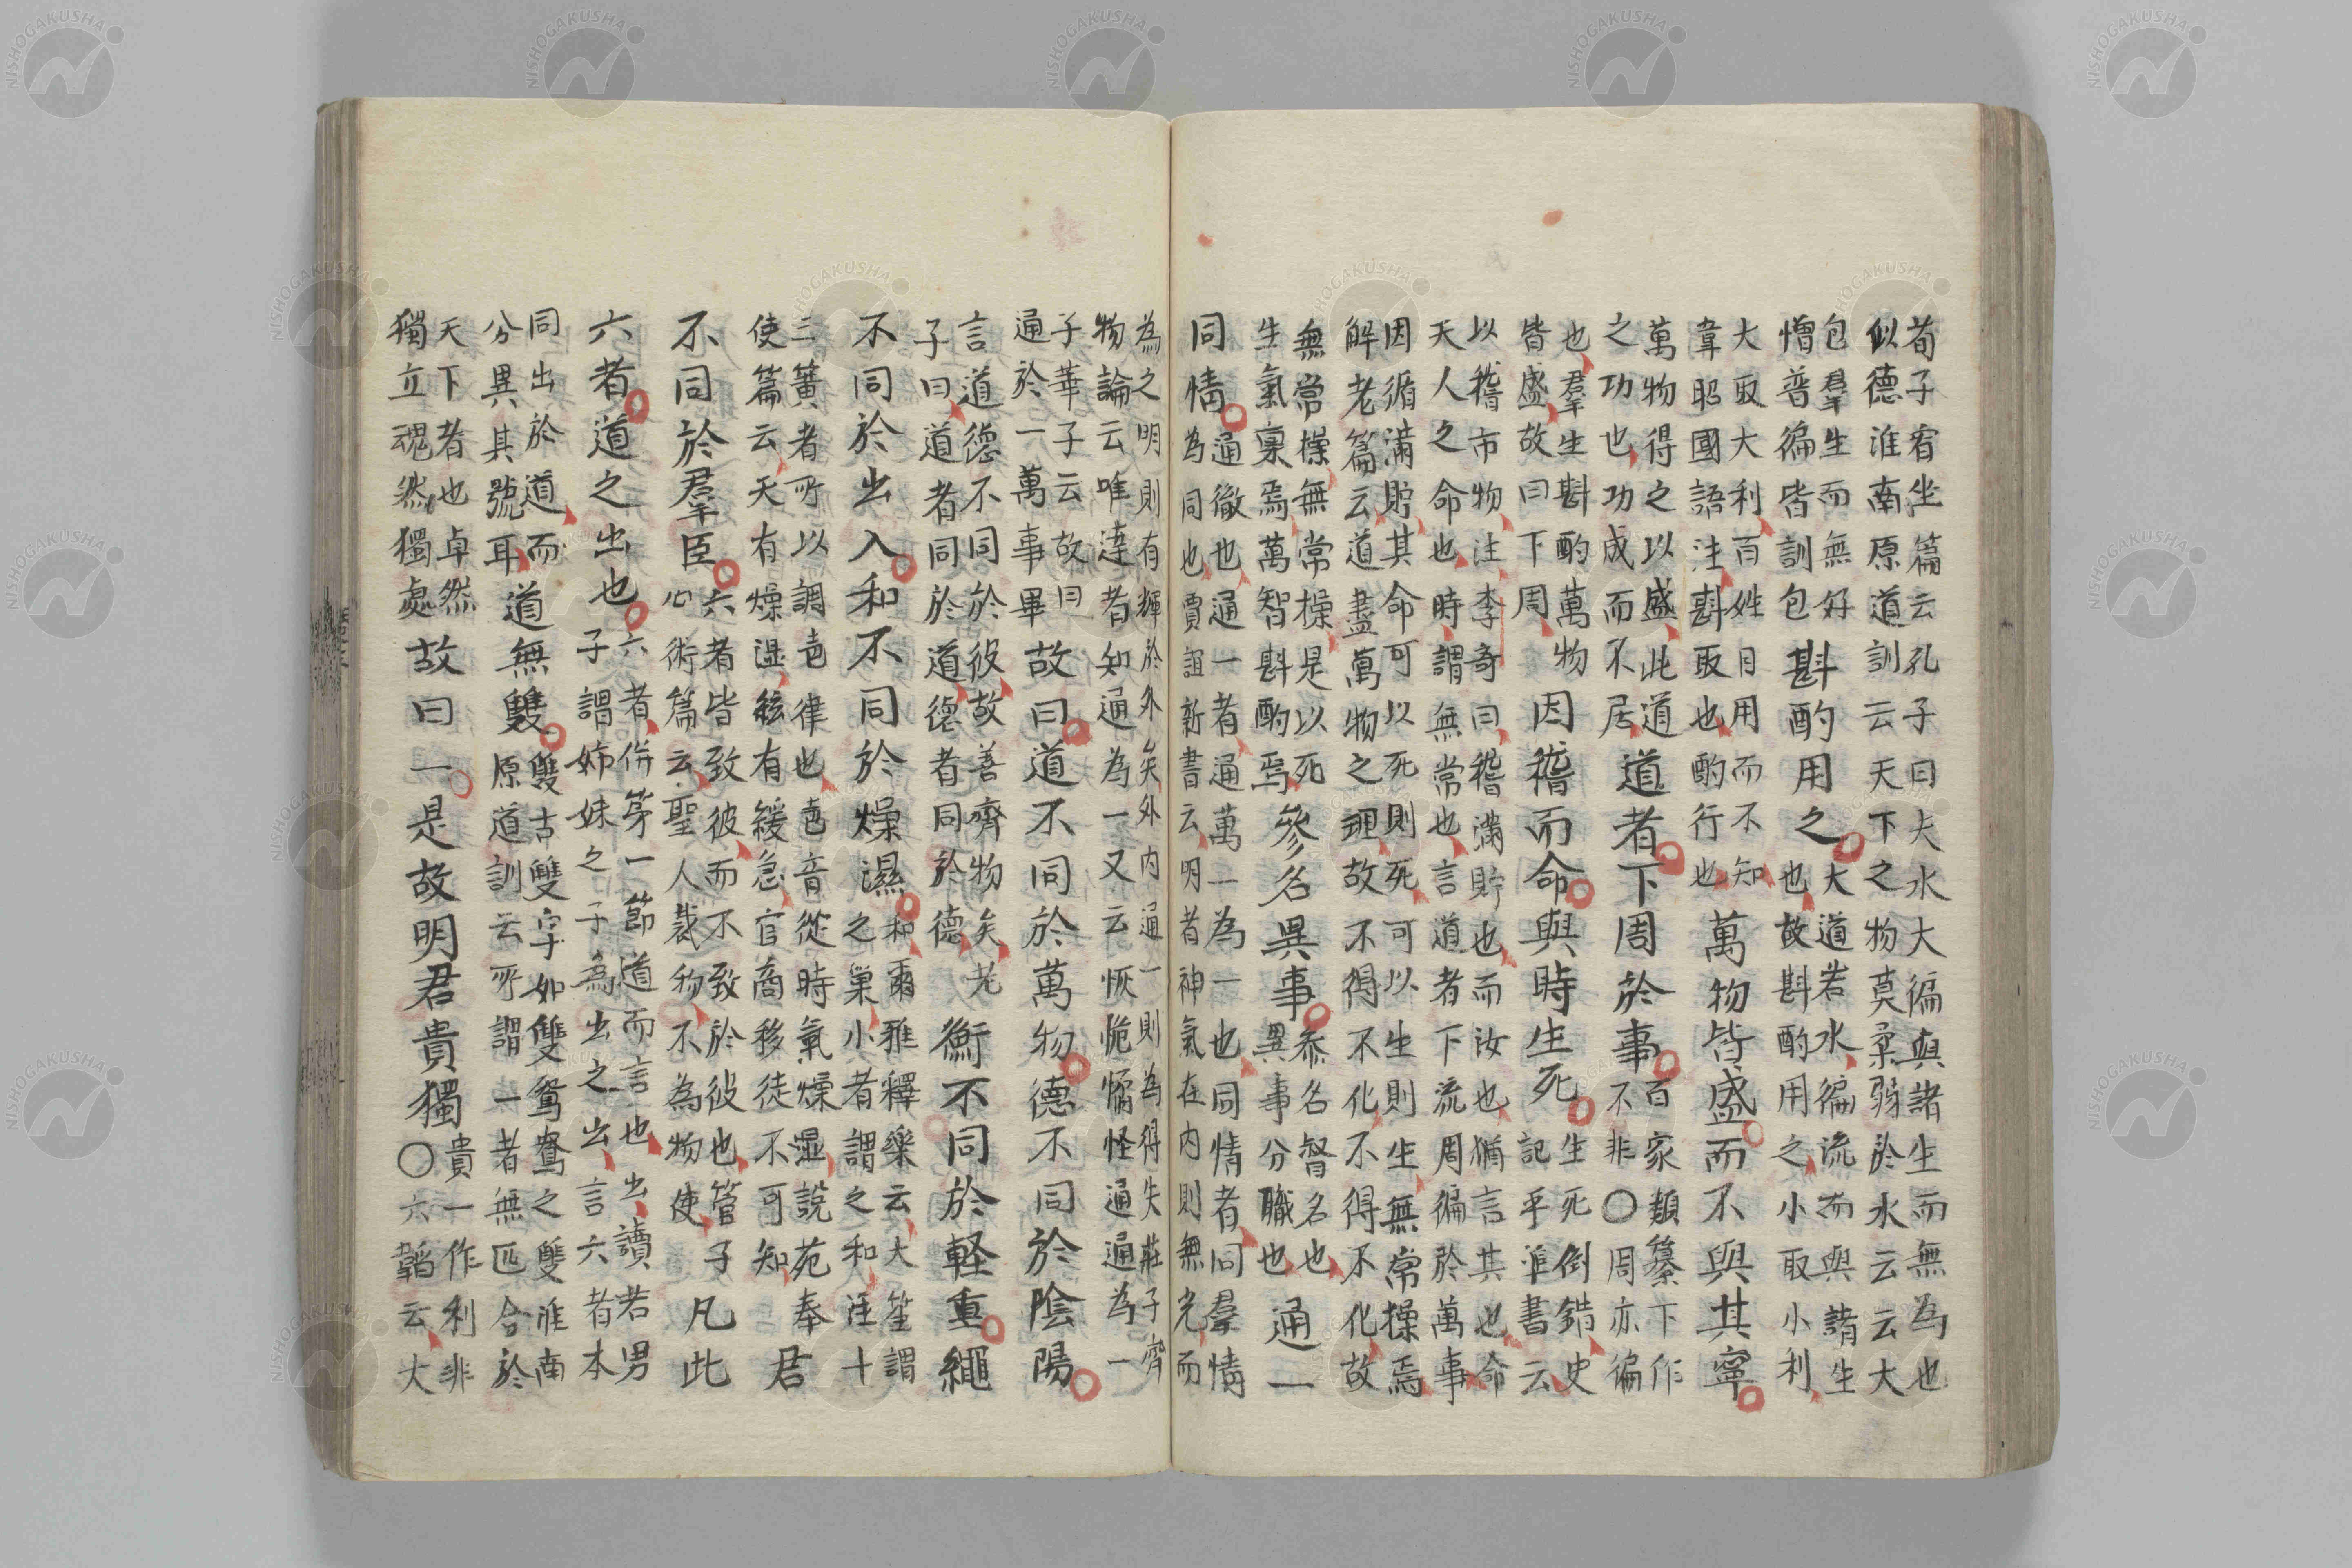 荀子宥坐篇云孔子曰夫水大徧與諸生而無為也
似德淮南原道訓云天下之物莫柔弱於水云云大
包羣生而無好
憎普徧皆訓包
斟酌用之
大道若水徧流而與諸生
也故斟酌用之小取小利
大取大利百姓日用而不知
韋昭國語注斟取也酌行也
萬物皆盛而不與其寧
萬物得之以盛此道
之功也功成而不居
道者下周於事
百家類纂下作
不非〇周亦徧
也羣生斟酌萬物
皆盛故曰下周
因稽而命與時生死
生死倒錯史
記平準書云
以稽市物注李奇曰稽滿貯也而汝也猶言其也命
天人之命也時謂無常也言道者下流周徧於萬事
因循滿貯其命可以死則死可以生則生無常操焉
解老篇云道盡萬物之理故不得不化不得不化故
無常操無常操是以死
生氣稟焉萬智斟酌焉
參名異事
叅名督名也
異事分職也
通一
同情
通徹也通一者通萬一為一也同情者同羣情
為同也賈誼新書云明者神氣在內則無光而
為之明則有輝於外矣外內通一則為得失莊子齊
物論云唯達者知通為一又云恢恑憰怪通通為一
子華子云故曰
通於一萬事畢
故曰道不同於萬物德不同於陰陽
言道德不同於彼故善齊物矣老
子曰道者同於道德者同於德
衡不同於軽重繩
不同於出入和不同於燥濕
和爾雅釋樂云大笙謂
之巢小者謂之和注十
三簧者所以調音律也音音從時氣燥湿說苑奉
使篇云天有燥湿絃有緩急官商移徒不可知
君
不同於羣臣
六者皆致彼而不致於彼也管子
心術篇云聖人裁物不為物使
凡此
六者道之出也
六者併第一節道而言也出讀若男
子謂姊妹之子為出之出言六者本
同出於道而
分異其號耳
道無雙
雙古雙字如雙鴛鴦之雙淮南
原道訓云所謂一者無匹合於
天下者也卓然
獨立魂然獨處
故曰一是故明君貴獨
貴一作利非
〇六韜云大